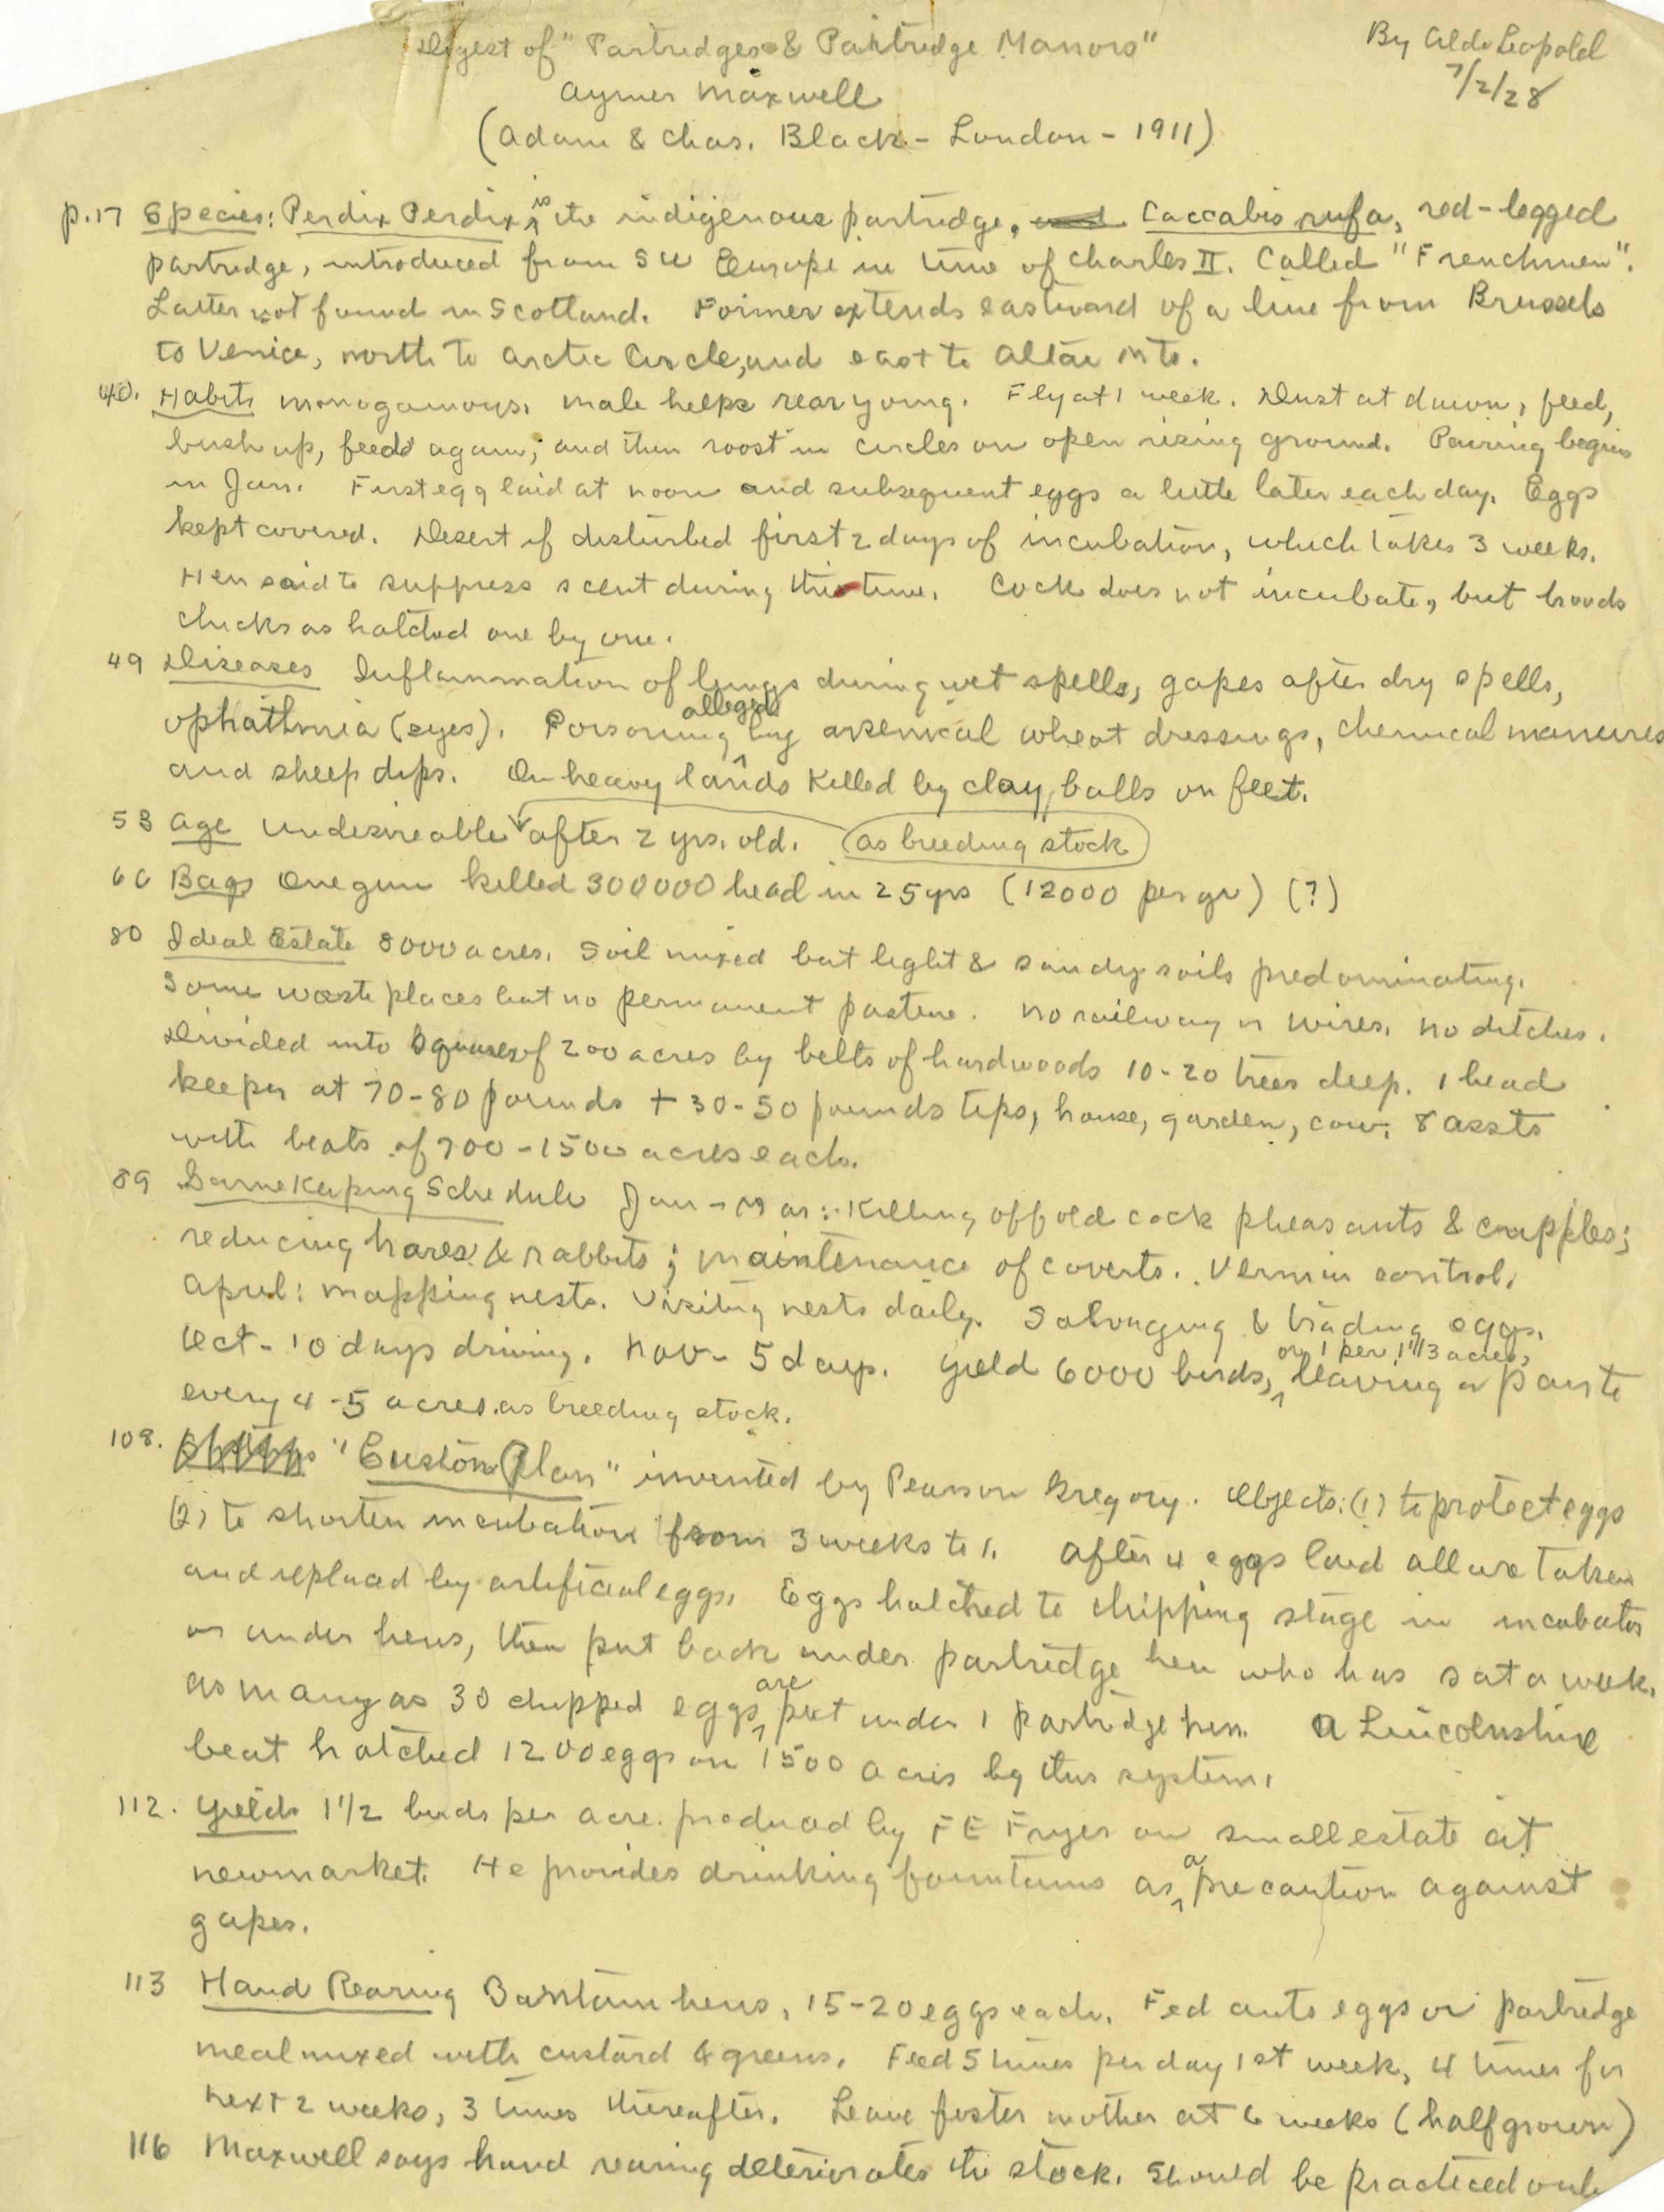 Digest of "Partridges & Partridge Manors"
By Aldo Leopold
Aymer Maxwell
7/2/28
(Adam & Chas. Black - London - 1911)
p.17 Species: Perdix Perdix is the indigenous partridge. Caccabis rufa, red-legged
partridge, introduced from SW Europe in time of Charles II. Called "Frenchmen".
Latter not found in Scotland. Former extends eastward of a line from Brussels
to Venice, north to Arctic Circle, and east to Altai Mts.
40. Habits monogamous. male helps rear young. Fly at 1 week. Dust at dawn, feed,
bush up, feed again; and then roost in circles on open rising ground. Pairing begins
in Jan. First egg laid at noon and subsequent eggs a little later each day. Eggs
kept covered. Desert if disturbed first 2 days of incubation, which takes 3 weeks.
Hen said to suppress scent during this time. Cock does not incubate, but broods
chicks as hatched one by one.
49 Diseases Inflammation of lungs during wet spells, gapes after dry spells,
ophathmia (eyes). Poisoning alleged by arsenical wheat dressings, chemical manures
and sheep dips. On heavy lands killed by clay balls on feet.
53 Age undesireable after 2 yrs. old. as breeding stock
66 Bags One gun killed 300000 head in 25 yrs (12000 per yr) (?)
80 Ideal Estate 8000 acres. Soil mixed but light & sandy soils predominating.
Some waste places but no permanent pasture. No railway or wires. No ditches.
Divided into squares of 200 acres by belts of hardwoods 10-20 trees deep. 1 head
keeper at 70-80 pounds + 30-50 pounds tips, house, garden, cow. 8 assts
with beats of 700-1500 acres each.
89 Gamekeping Schedule Jan - Mar: Killing off old cock pheasants & cripples;
reducing hares & rabbits; maintenance of coverts. Vermin control.
April: mapping nests. Visiting nests daily. Salvaging & trading eggs.
Oct - 10 days driving. Nov - 5 days. Yield 6000 birds, or 1 per 1 1/3 acres, leaving a pair to
every 4-5 acres as breeding stock.
108. "Euston Plan" invented by Pearson Gregory. Objects: (1) to protect eggs
(2) to shorten incubation from 3 weeks to 1. After 4 eggs laid all are taken
and replaced by artificial eggs. Eggs hatched to chipping stage in incubator
or under hens, then put back under partridge hen who has sat a week.
As many as 30 chipped eggs are put under 1 partridge hen. A Lincolnshire
beat hatched 1200 eggs on 1500 acres by this system.
112. Yields 1 1/2 birds per acre produced by FE Fryer on small estate at
Newmarket. He provides drinking fountains as a precaution against
gapes.
113 Hand Rearing Bantam hens, 15-20 eggs each. Fed ants eggs or partridge
meal mixed with custard & greens. Feed 5 times per day 1st week, 4 times for
next 2 weeks, 3 times thereafter. Leave foster mother at 6 weeks (half grown)
116 Maxwell says hand rearing deteriorates the stock. Should be practiced only